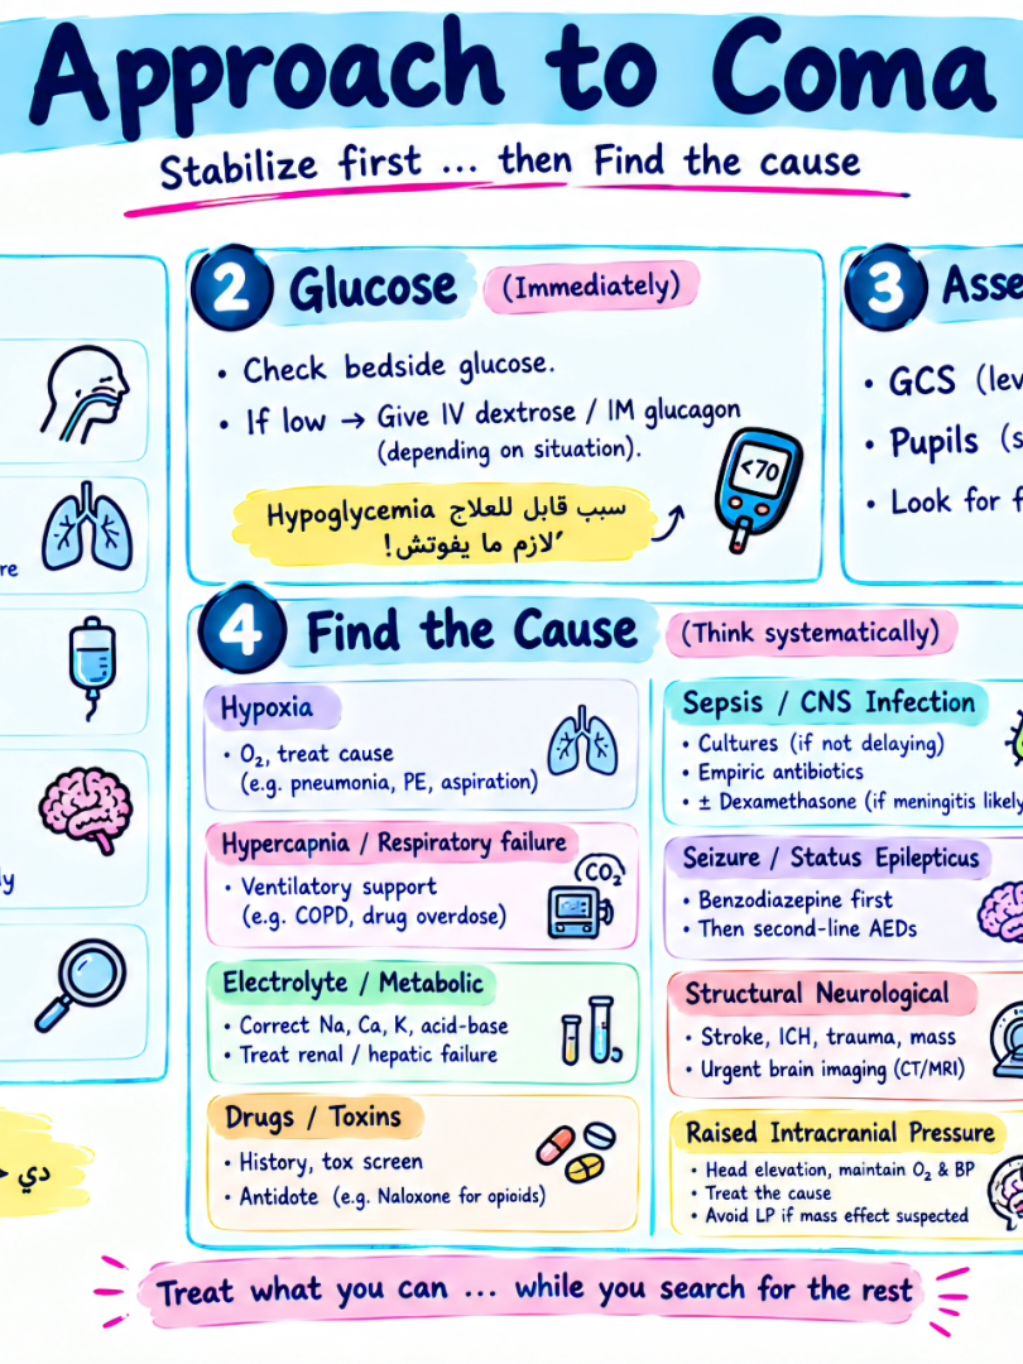 Approach to Coma
Stabilize first ... then Find the cause
re
ly
دي
2 Glucose (Immediately)
• Check bedside glucose.
• If low → Give IV dextrose / IM glucagon
(depending on situation).
<70
Hypoglycemia سبب قابل للعلاج
لازم ما يفوتش!
3 Asse
• GCS (lev
• Pupils (s
• Look for f
4 Find the Cause (Think systematically)
Hypoxia
• O₂, treat cause
(e.g. pneumonia, PE, aspiration)
Hypercapnia / Respiratory failure
• Ventilatory support
(e.g. COPD, drug overdose)
CO₂
Electrolyte / Metabolic
• Correct Na, Ca, K, acid-base
• Treat renal / hepatic failure
Drugs / Toxins
• History, tox screen
• Antidote (e.g. Naloxone for opioids)
Sepsis / CNS Infection
• Cultures (if not delaying)
• Empiric antibiotics
• ± Dexamethasone (if meningitis likely
Seizure / Status Epilepticus
• Benzodiazepine first
• Then second-line AEDs
Structural Neurological
• Stroke, ICH, trauma, mass
• Urgent brain imaging (CT/MRI)
Raised Intracranial Pressure
• Head elevation, maintain O₂ & BP
• Treat the cause
• Avoid LP if mass effect suspected
Treat what you can ... while you search for the rest